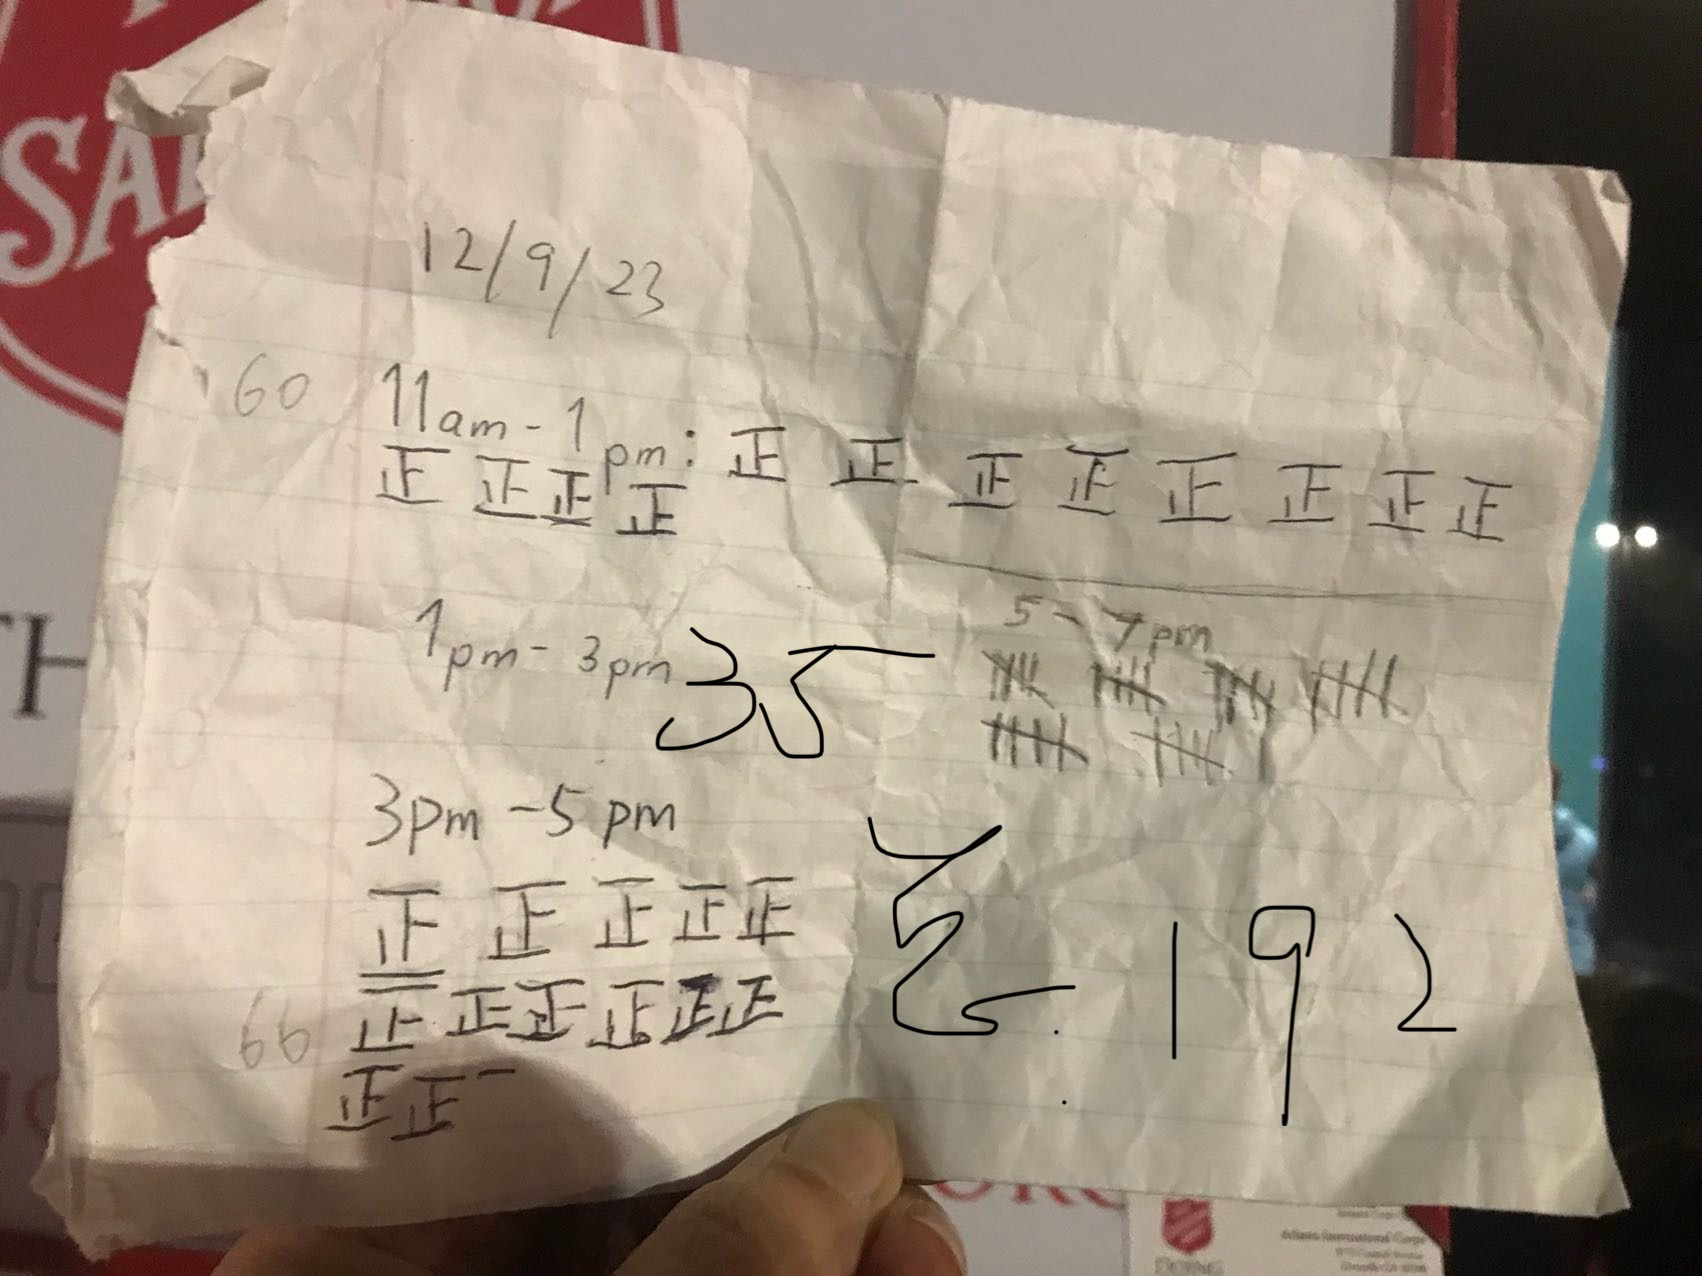 SAL
TH
12/9/23
60 11am-1pm: 正 正 正 正 正 正 正 正
正 正 正 正
1pm-3pm 35
5-7pm
卌 卌 卌 卌
卌 卌 |
3pm-5pm
正 正 正 正 正
66 正 正 正 正 正 正
正 正 一
Σ: 192
Atlanta International Corps
DOING